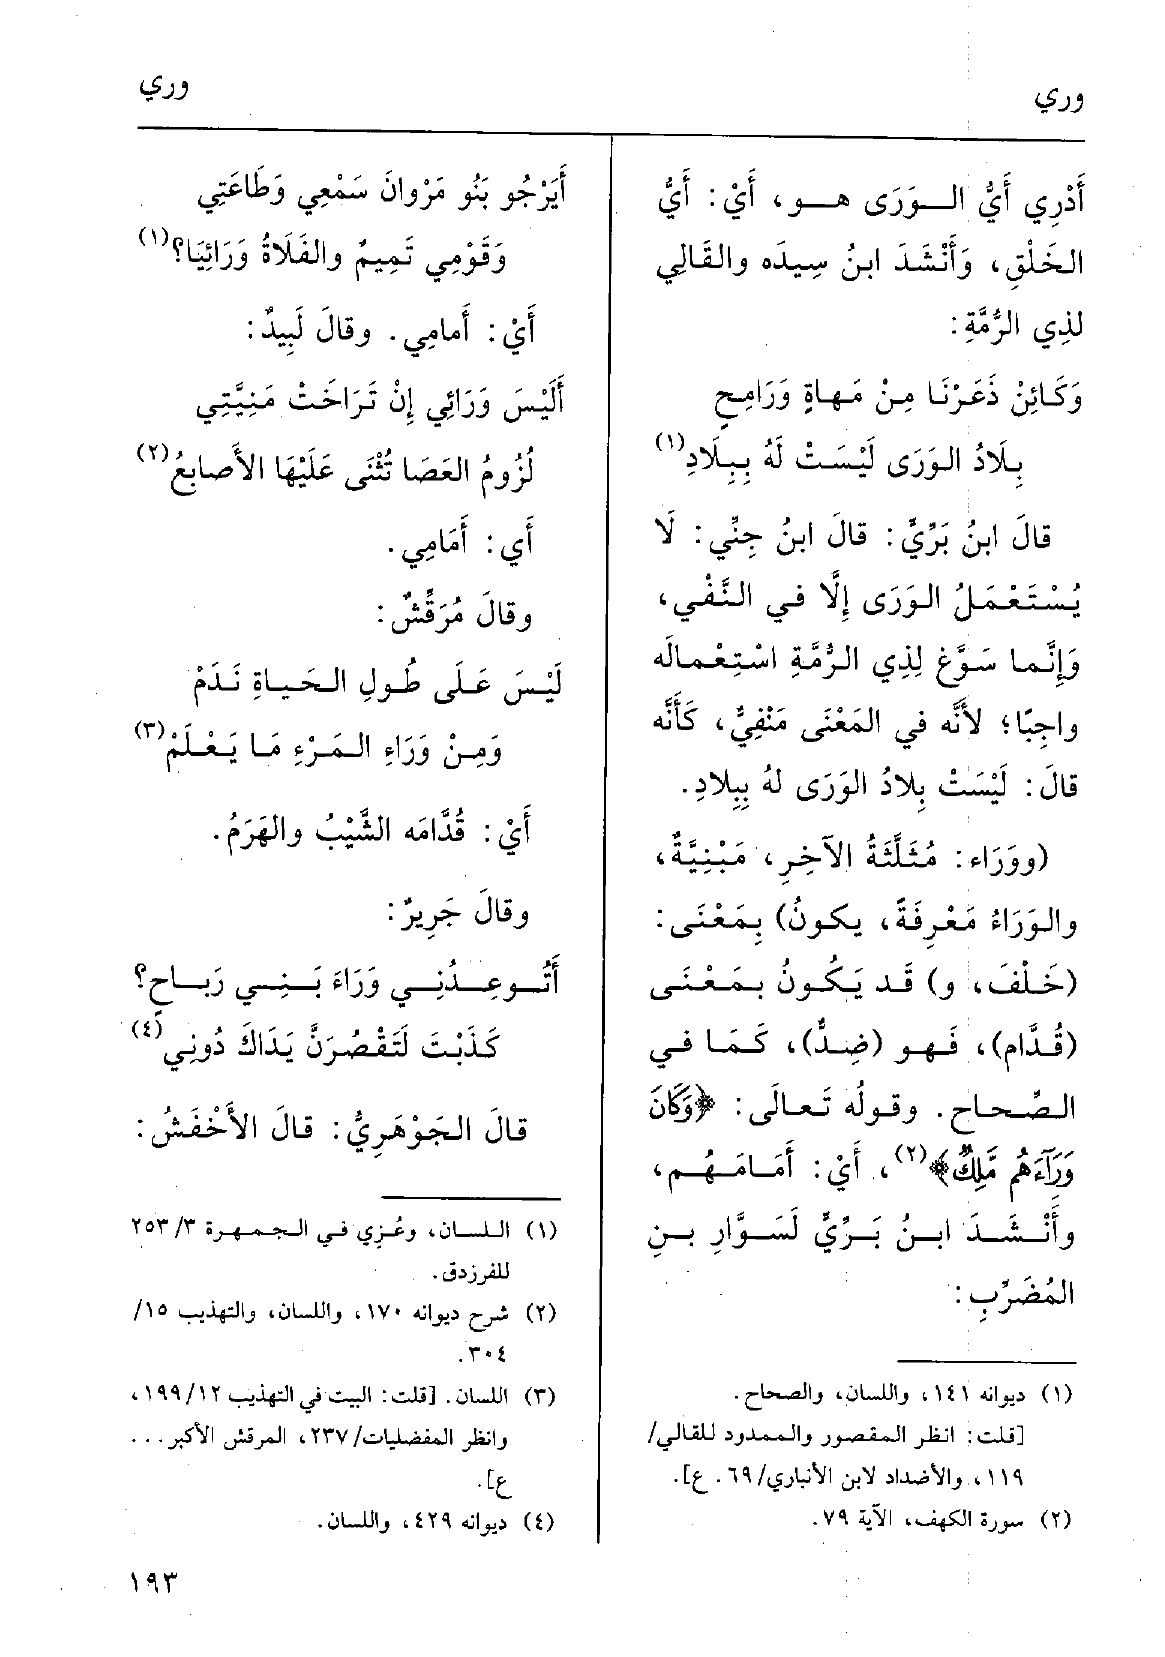 وري
وري
أَدْرِي أَيُّ الـوَرَى هـو، أَيْ: أَيُّ
الخَلْقِ، وَأَنْشَدَ ابنُ سِيدَه والقَالِي
لذِي الرُّمَّةِ:
وَكَائِنْ ذَعَرْنَا مِنْ مَهاةٍ وَرَامِحٍ
بِلَادُ الوَرَى لَيْسَتْ لَهُ بِبِلَادِ(١)
قالَ ابنُ بَرِّيٍّ: قالَ ابنُ جِنِّي: لَا
يُسْتَعْمَلُ الوَرَى إِلَّا في النَّفْيِ،
وَإِنَّما سَوَّغ لِذِي الرُّمَّةِ اسْتِعْمالَه
واجِبًا؛ لأَنَّه في المَعْنَى مَنْفِيٌّ، كَأَنَّه
قالَ: لَيْسَتْ بِلادُ الوَرَى لهُ بِبِلادِ.
(ووَرَاء: مُثَلَّثَةُ الآخِرِ، مَبْنِيَّةٌ،
والوَرَاءُ مَعْرِفَةً، يكونُ) بِمَعْنَى:
(خَلْفَ، و) قَد يَكُونُ بمَعْنَى
(قُدَّام)، فَهو (ضِدٌّ)، كَمَا في
الصِّحاحِ. وقولُه تَعالَى: ﴿وَكَانَ
وَرَآءَهُم مَّلِكٌ﴾(٢)، أَيْ: أَمَامَهُم،
وأَنْشَدَ ابنُ بَرِّيٍّ لَسَوَّارِ بنِ
المُضَرِّبِ:
(١) ديوانه ١٤١، واللسان، والصحاح.
[قلت: انظر المقصور والممدود للقالي/
١١٩، والأضداد لابن الأنباري/٦٩. ع].
(٢) سورة الكهف، الآية ٧٩.
أَيَرْجُو بَنُو مَرْوانَ سَمْعِي وَطَاعَتِي
وَقَوْمِي تَمِيمٌ والفَلَاةُ وَرَائِيَا؟(١)
أَيْ: أَمامِي. وقالَ لَبِيدٌ:
أَلَيْسَ وَرَائِي إِنْ تَرَاخَتْ مَنِيَّتِي
لُزُومُ العَصَا تُثْنَى عَلَيْهَا الأَصابعُ(٢)
أَي: أَمَامِي.
وقالَ مُرَقِّشٌ:
لَيْسَ عَلَى طُولِ الحَياةِ نَدَمْ
وَمِنْ وَرَاءِ المَرْءِ مَا يَعْلَمْ(٣)
أَيْ: قُدَّامَه الشَّيْبُ والهَرَمُ.
وقالَ جَرِيرٌ:
أَتُوعِدُنِي وَرَاءَ بَنِي رَبـاحٍ؟
كَذَبْتَ لَتَقْصُرَنَّ يَدَاكَ دُونِي(٤)
قالَ الجَوْهَرِيُّ: قالَ الأَخْفَشُ:
(١) اللسان، وعُزِي في الجمهرة ٣/ ٢٥٣
للفرزدق.
(٢) شرح ديوانه ١٧٠، واللسان، والتهذيب ١٥/
٣٠٤.
(٣) اللسان. [قلت: البيت في التهذيب ١٩٩/١٢،
وانظر المفضليات/٢٣٧، المرقش الأكبر...
ع].
(٤) ديوانه ٤٢٩، واللسان.
١٩٣